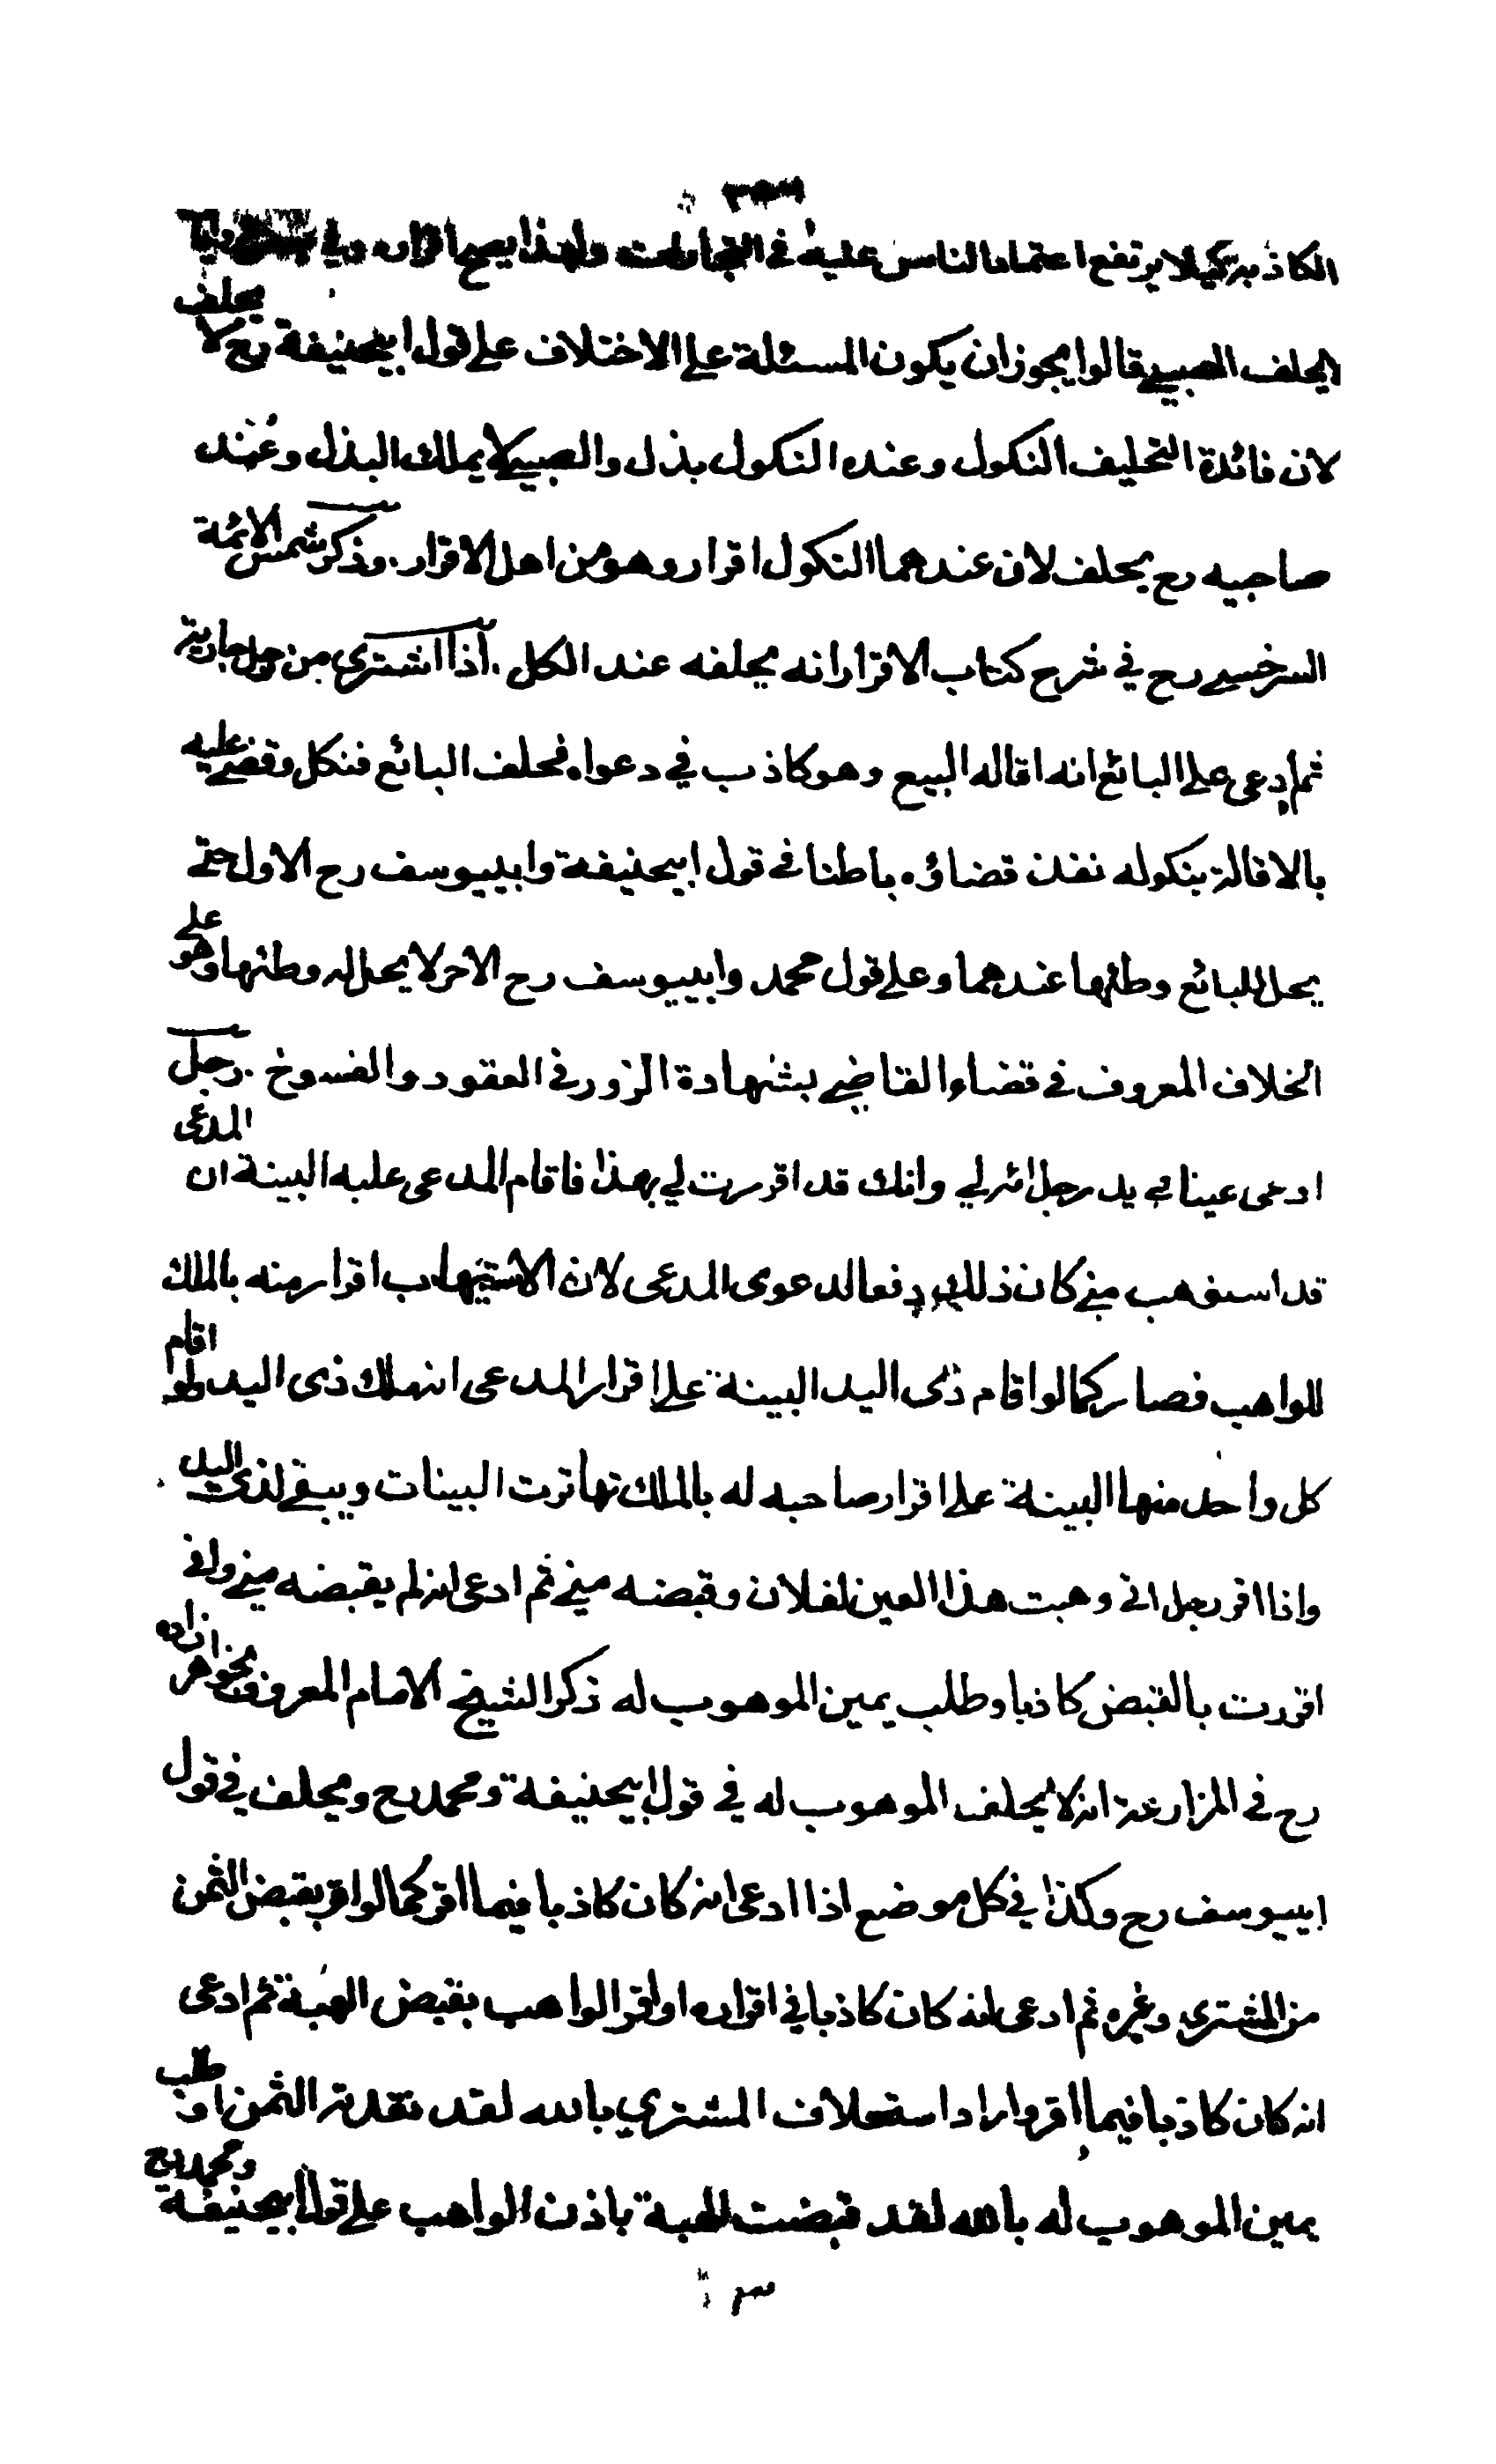 الكاذبة كيلا يرتفع اعتماد الناس عليه في التجارات ولهذا يصح اقراره
يحلف الصبي قالوا يجوز ان يكون المسئلة على الاختلاف على قول ابيحنيفة رح لا يحلف
لان فائدة التحليف النكول وعنده النكول بذل والصبي لا يملك البذل وعند
صاحبيه رح يحلف لان عندهما النكول اقرار وهو من اهل الاقرار. وذكر شمس الائمة
السرخسي رح في شرح كتاب الاقرار انه يحلفه عند الكل. اذا اشترى من رجل جارية
ثم ادعى على البائع انه اقاله البيع وهو كاذب في دعواه فحلف البائع فنكل وقضى عليه
بالاقالة بنكوله نفذ قضاؤه باطنا في قول ابيحنيفة وابييوسف رح الاول حتى
يحل للبائع وطئها عندهما وعلى قول محمد وابييوسف رح الاخر لا يحل له وطئها وهو على
الخلاف المعروف في قضاء القاضي بشهادة الزور في العقود والفسوخ. رجل
ادعى عينا في يد رجل انه لي وانك قد اقررت لي بهذا فاقام المدعى عليه البينة ان المدعى
قد استوهب مني كان ذلك دفعا لدعوى المدعى لان الاستيهاب اقرار منه بالملك
للواهب فصار كما لو اقام ذى اليد البينة على اقرار المدعى انه ملك ذى اليد ولو اقام
كل واحد منهما البينة على اقرار صاحبه له بالملك تهاترت البينات ويبقى لذى اليد
واذا اقر رجل اني وهبت هذا العين لفلان وقبضه مني ثم ادعى انه لم يقبضه مني واني
اقررت بالقبض كاذبا وطلب يمين الموهوب له ذكر الشيخ الامام المعروف بخواهر زاده
رح في المزارعة انه لا يحلف الموهوب له في قول ابيحنيفة ومحمد رح ويحلف في قول
ابييوسف رح وكذا في كل موضع اذا ادعى انه كان كاذبا فيما اقر كما لو اقر بقبض الثمن
من المشتري وغيره ثم ادعى انه كان كاذبا في اقراره او اقر الواهب بقبض الهبة ثم ادعى
انه كان كاذبا فيما اقر واراد استحلاف المشتري بالله لقد نقدته الثمن او طلب
يمين الموهوب له بالله لقد قبضت الهبة باذن الواهب على قول ابيحنيفة ومحمد رح